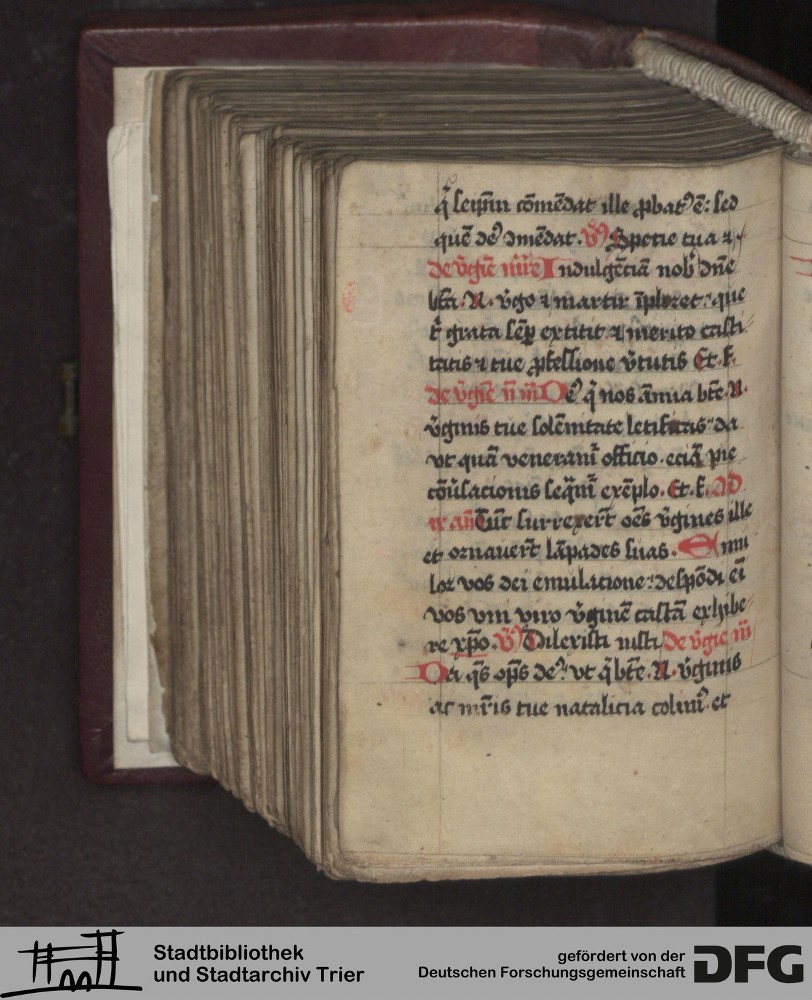 qͥ seip̄m cōmēdat ille ꝓbatꝰ ē: sed
quē deꝰ ↄmēdat. V̾ Specie tua ⁊
de v̾gīe m̄r̄e Indulgēciā nob̾ dn̄e
bt̄a .N. v̾go ⁊ martir īploret: que
t̾ grata sēꝑ extitit ⁊ merito casti
tatis ⁊ tue ꝓfessione v̾tutis Et .F.
de v̾gīe n̄ m̄ Dꝰ qͥ nos ānua bt̄e .N.
v̾ginis tue solēnitate letificas: da
vt quā veneramᷣ officio. eciā pie
cōu̾sacionis seqͣmᷣ exēplo. Et .F. Ad
Tūc surrexer̄t oēs v̾gines ille
et ornauer̄t lāpades suas. Emu
lor vos dei emulacione: despōdi ei
vos vni viro v̾ginē castā exhibe
re xp̄o. V̾ Dilexisti iusti de v̾gīe m̄
Da qͣs̄ op̄s deꝰ: vt qͥ bt̄e .N. v̾ginis
ac m̄ris tue natalicia colimꝰ. et
Stadtbibliothek
und Stadtarchiv Trier
gefördert von der
Deutschen Forschungsgemeinschaft
DFG